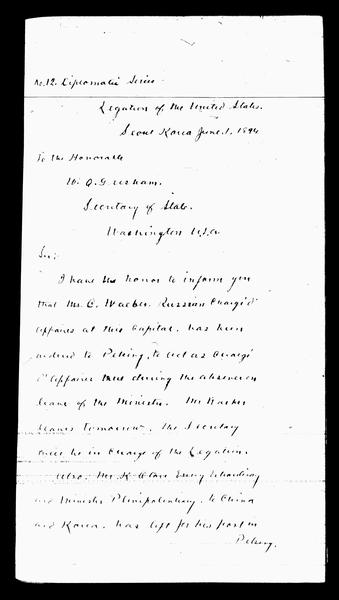 No. 12. Diplomatic Series
Legation of the United States.
Seoul Korea June 1, 1894
To the Honorable
W. Q. Gresham.
Secretary of State.
Washington U.S.A.
Sir;
I have the honor to inform you
that Mr. C. Waeber. Russian Chargé d'
affaires at this Capital. has been
ordered to Peking, to act as Chargé
d'Affaires there during the absence on
leave of the Minister. Mr Waeber
leaves tomorrow. The Secretary
will be in charge of the Legation.
Also, Mr. K. Envoy Extraordinary
and Minister Plenipotentiary. to China
and Korea. has left for his post in
Peking.